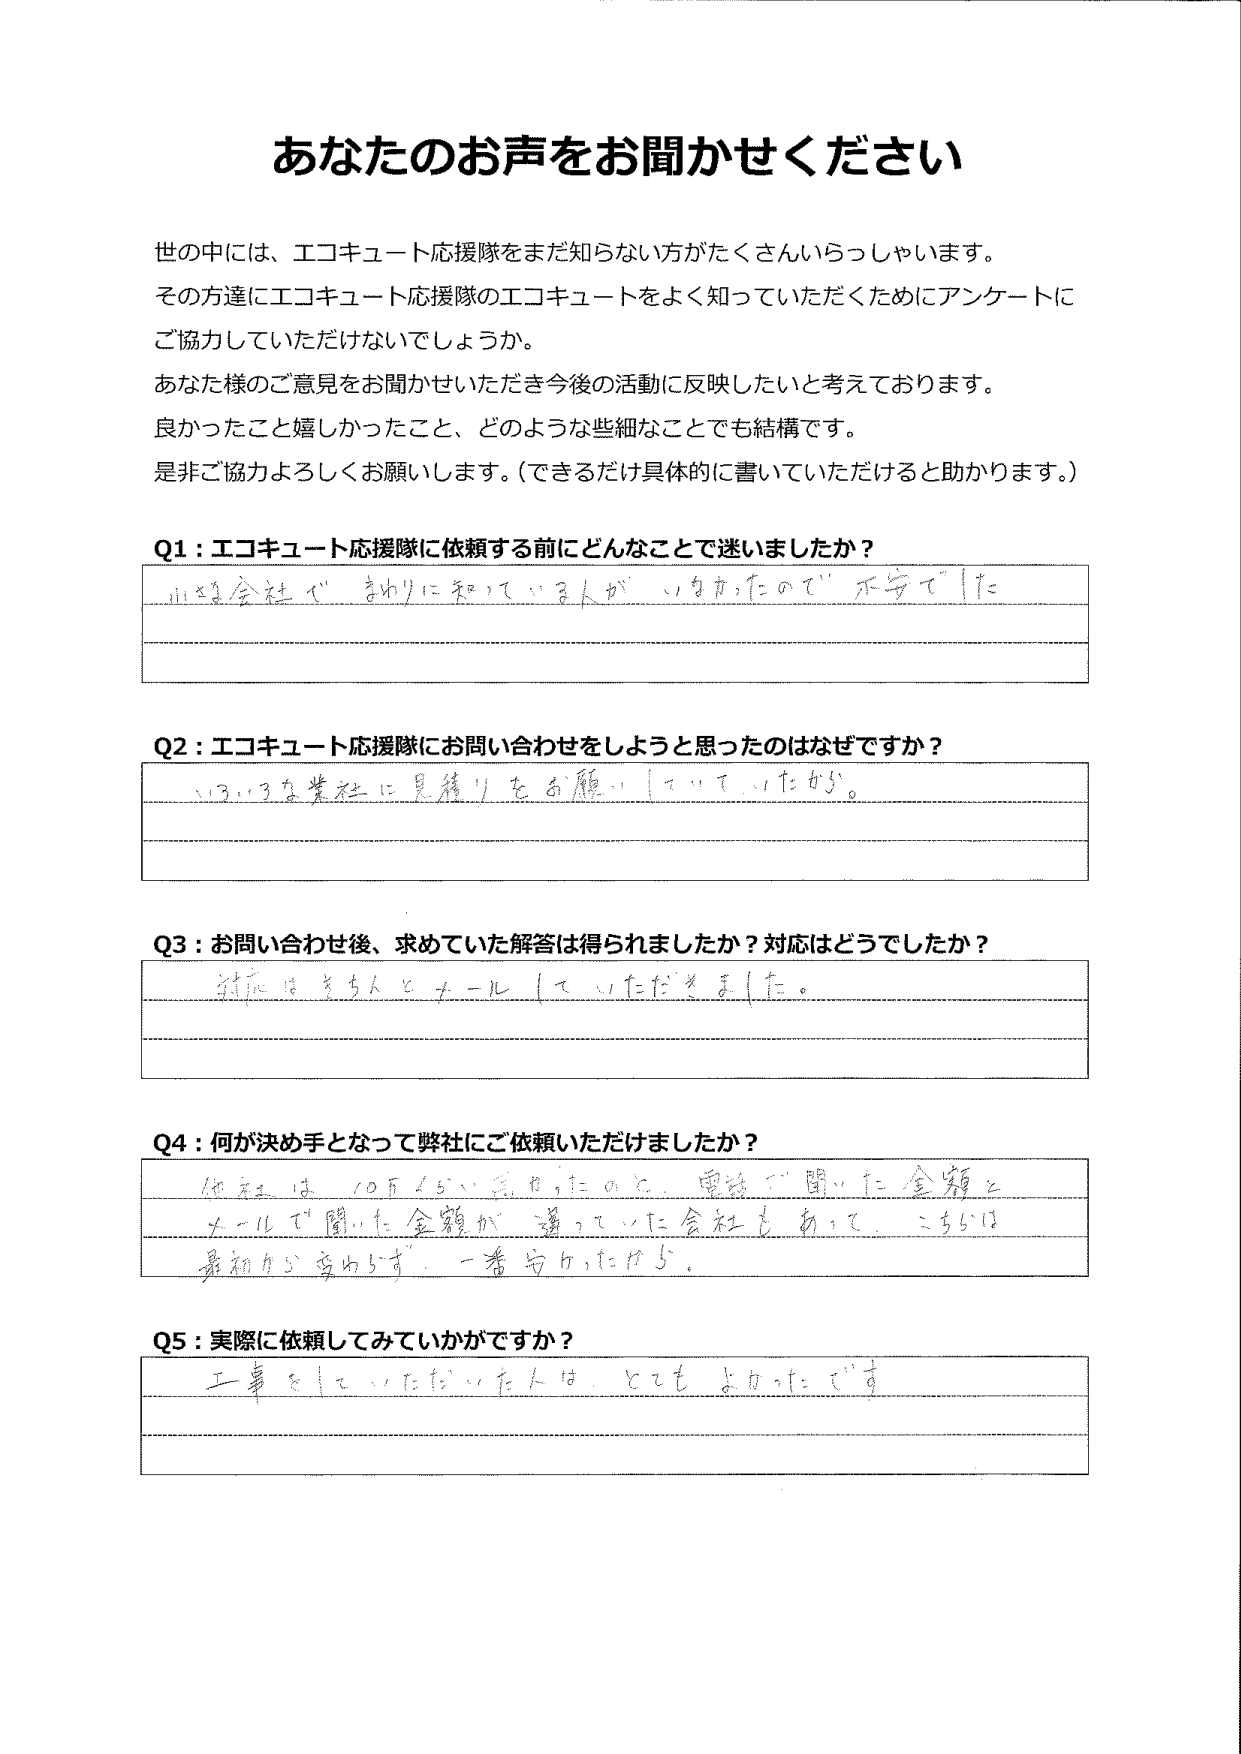 あなたのお声をお聞かせください
世の中には、エコキュート応援隊をまだ知らない方がたくさんいらっしゃいます。
その方達にエコキュート応援隊のエコキュートをよく知っていただくためにアンケートに
ご協力していただけないでしょうか。
あなた様のご意見をお聞かせいただき今後の活動に反映したいと考えております。
良かったこと嬉しかったこと、どのような些細なことでも結構です。
是非ご協力よろしくお願いします。（できるだけ具体的に書いていただけると助かります。）
Q1：エコキュート応援隊に依頼する前にどんなことで迷いましたか？
小さな会社で まわりに知っている人が いなかったので 不安でした
Q2：エコキュート応援隊にお問い合わせをしようと思ったのはなぜですか？
いろいろな業社に見積りをお願いしていていたから。
Q3：お問い合わせ後、求めていた解答は得られましたか？対応はどうでしたか？
対応はきちんとメールしていただきました。
Q4：何が決め手となって弊社にご依頼いただけましたか？
他社は 10万くらい高かったのと、電話で聞いた金額と
メールで聞いた金額が 違っていた会社もあって、こちらは
最初から変わらず、一番安かったから。
Q5：実際に依頼してみていかがですか？
工事をしていただいた人は、とてもよかったです